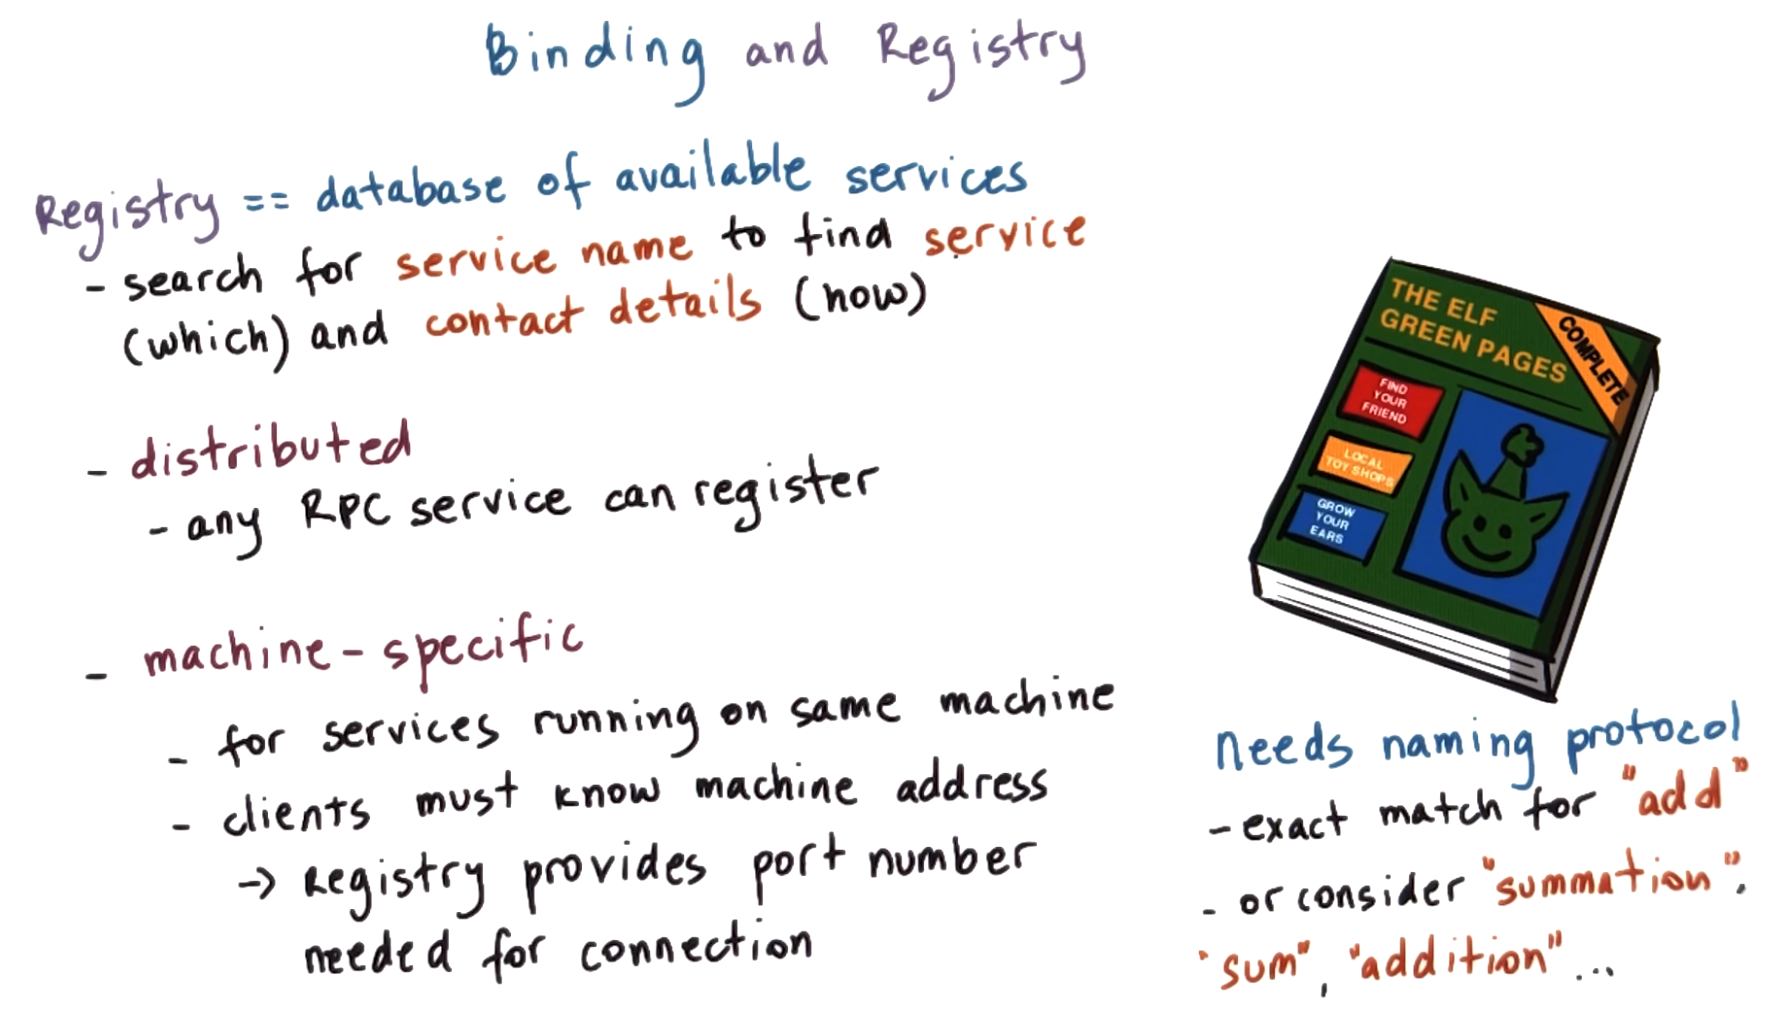 Binding and Registry
Registry == database of available services
- search for service name to find service
(which) and contact details (how)
- distributed
- any RPC service can register
- machine-specific
- for services running on same machine
- clients must know machine address
→ Registry provides port number
needed for connection
THE ELF
GREEN PAGES
COMPLETE
FIND
YOUR
FRIEND
LOCAL
TOY SHOPS
GROW
YOUR
EARS
Needs naming protocol
- exact match for "add"
- or consider "summation",
"sum", "addition"...